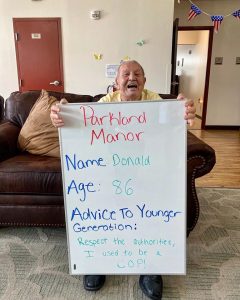 Parkland
Manor
Name: Donald
Age: 86
Advice To Younger
Generation:
Respect the authorities,
I used to be a
COP!